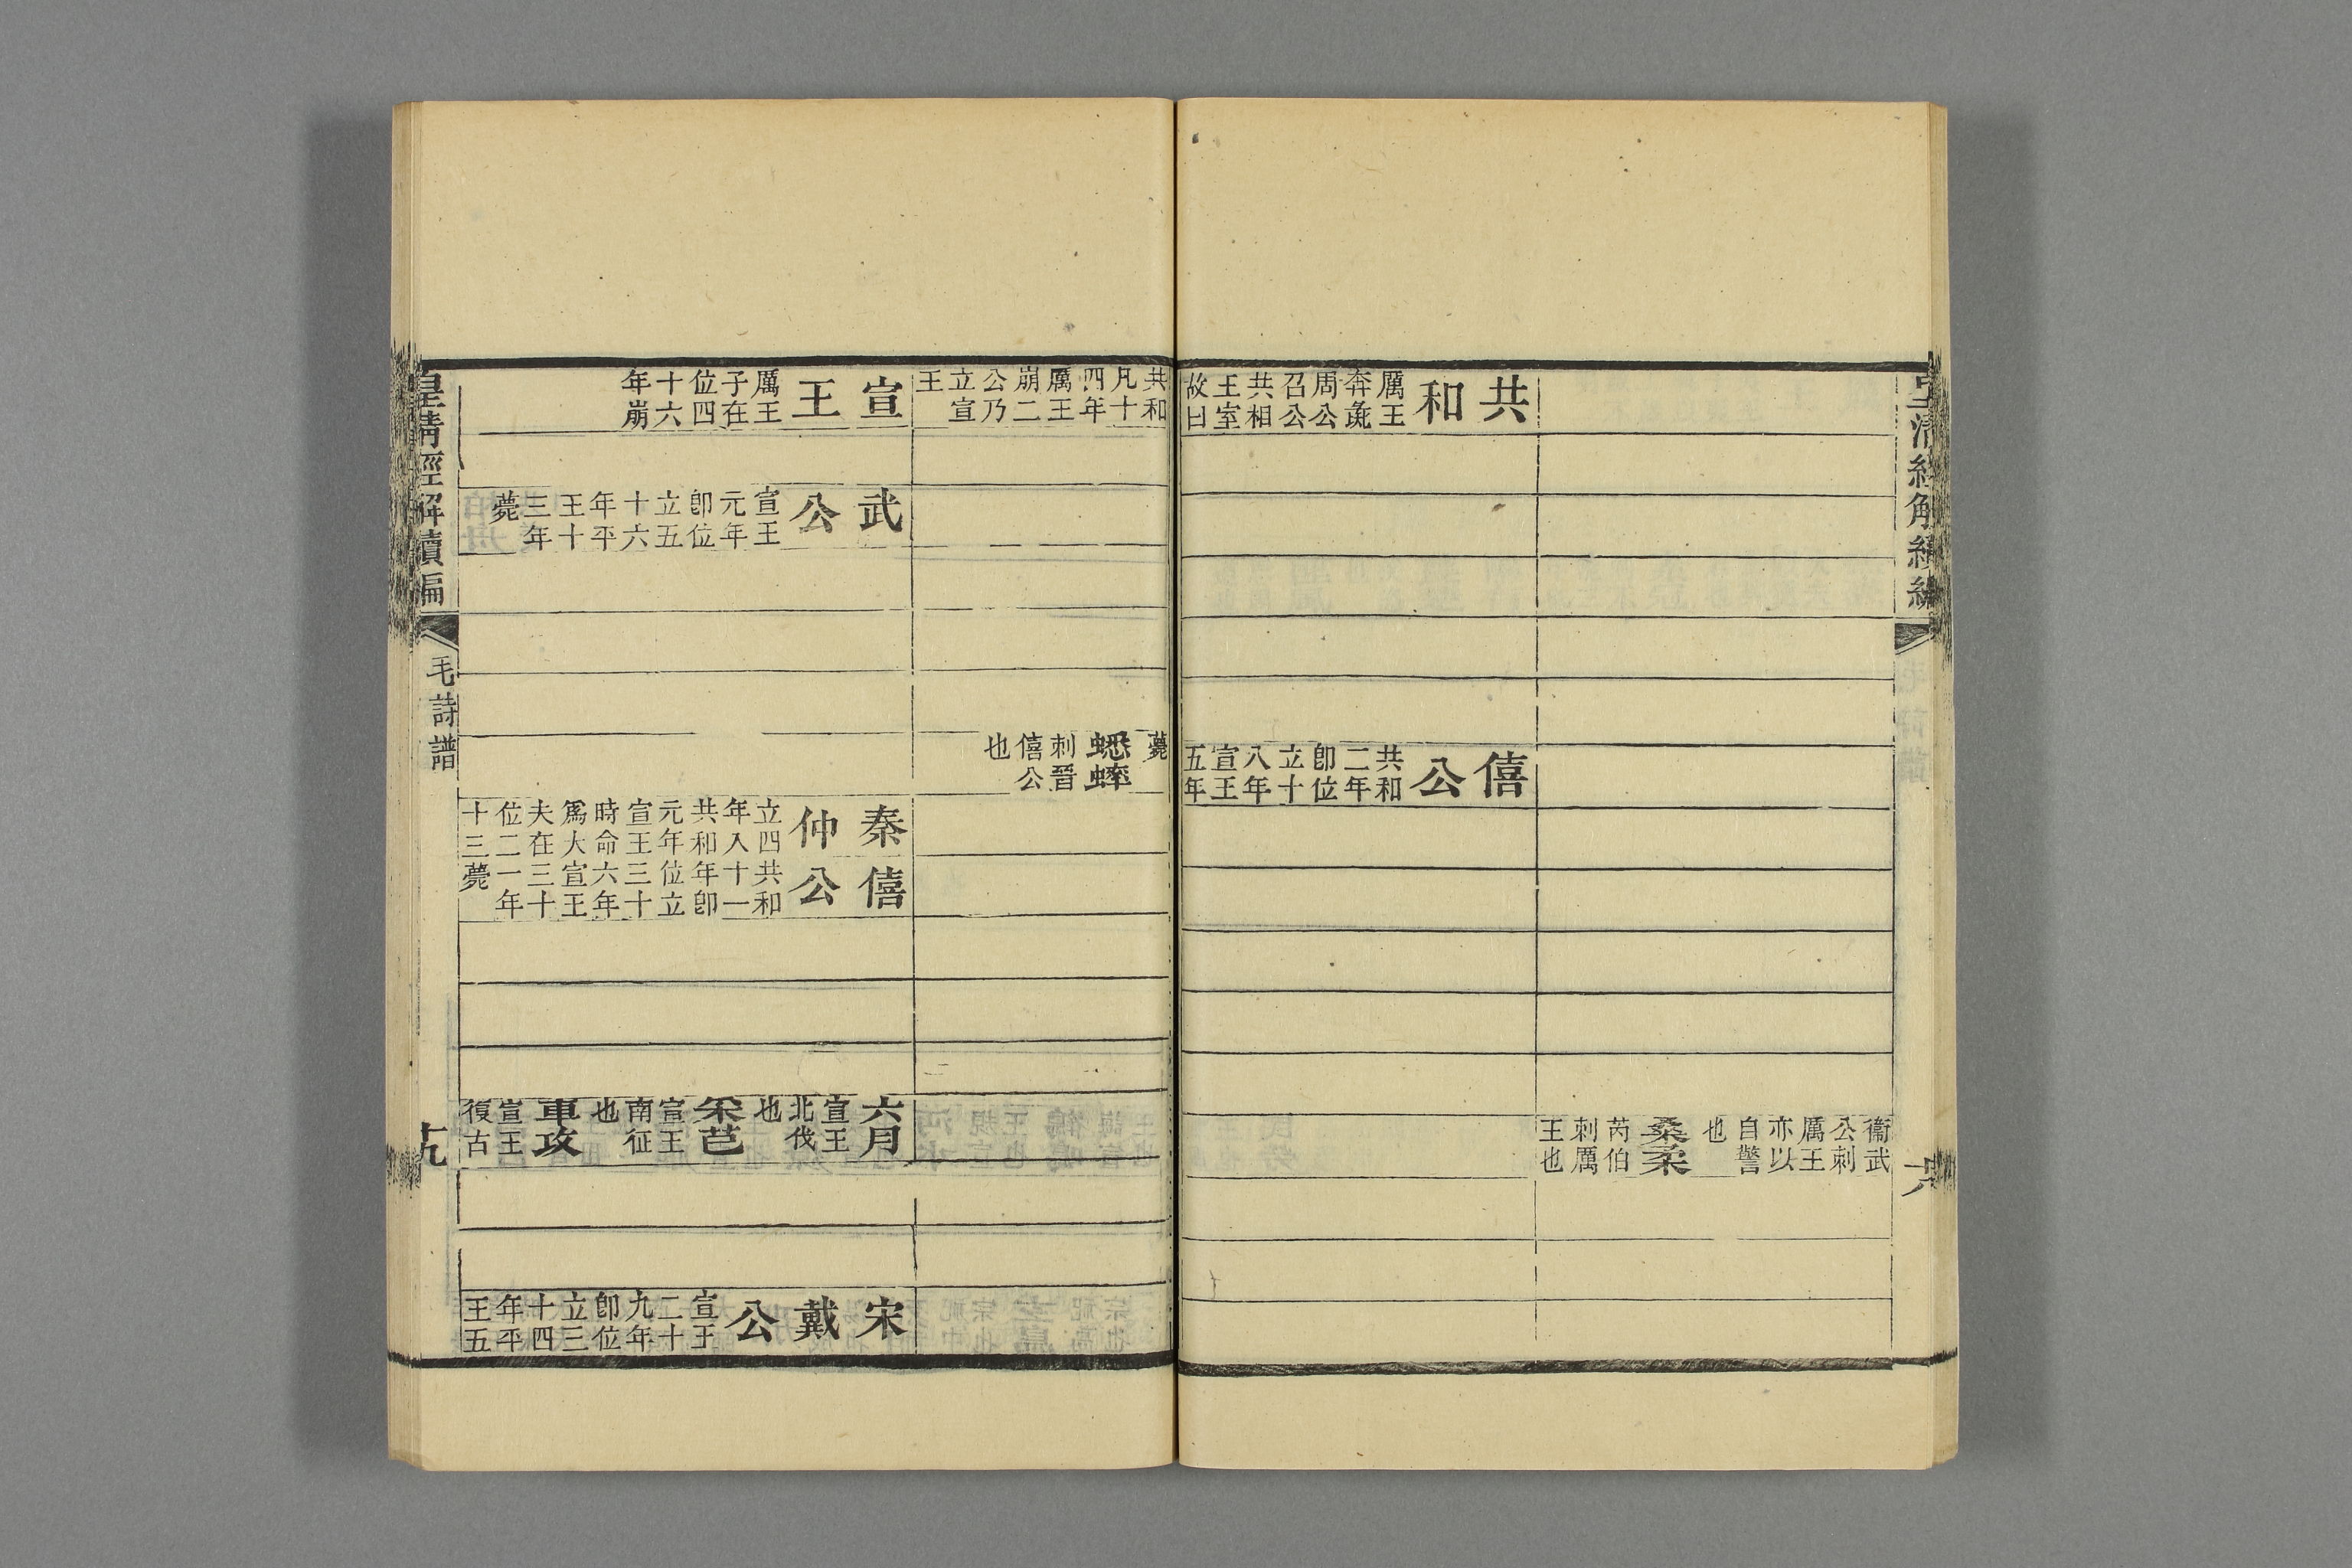 皇清經解續編
衞武公刺厲王亦以自警也桑柔芮伯刺厲王也
共和厲王奔彘周公召公共相王室故曰
僖公共和二年卽位立十八年宣王五年
共和凡十四年厲王崩二公乃立宣王
薨蟋蟀刺晉僖公也
宣王厲王子在位四十六年崩
武公宣王元年卽位立五十六年平王十三年薨
秦仲立四年入共和元年宣王時命爲大夫在位二十三
僖公共和十一年卽位立三十六年宣王三十一年薨
六月宣王北伐也采芑宣王南征也車攻宣王復古
宋戴公宣王二十九年卽位立三十四年平王五
皇清經解續編
毛詩譜
十九